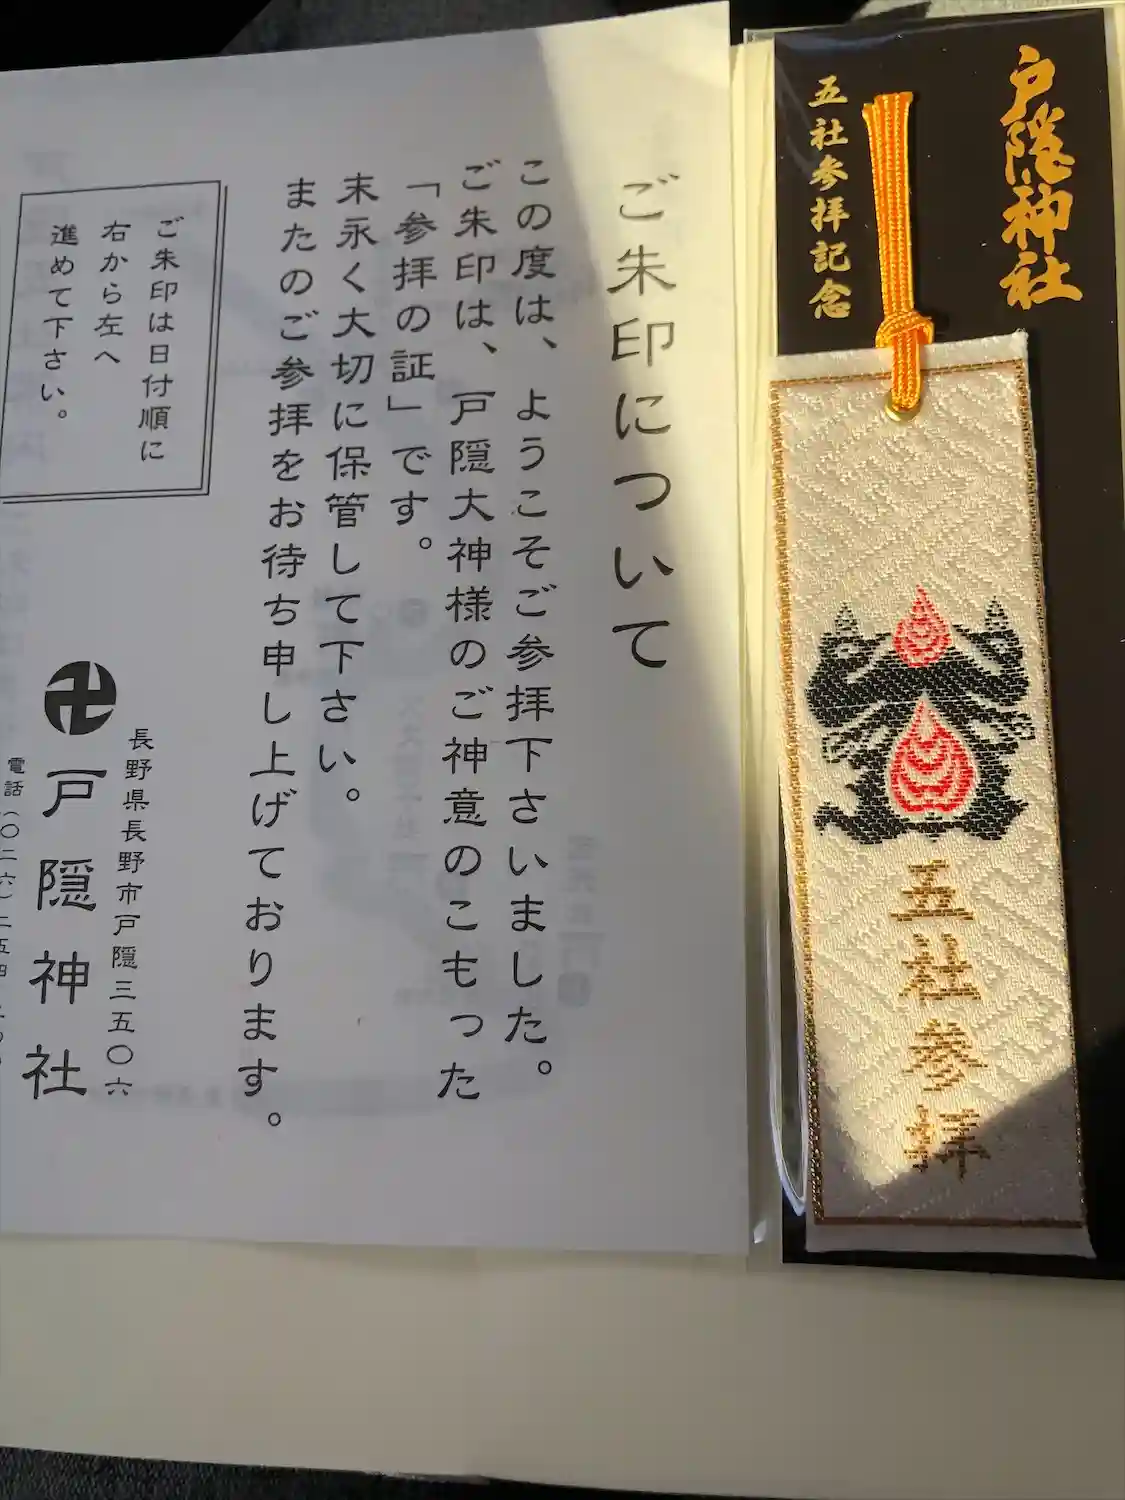 戸隠神社
五社参拝記念
五社参拝
ご朱印について
この度は、ようこそご参拝下さいました。
ご朱印は、戸隠大神様のご神意のこもった
「参拝の証」です。
末永く大切に保管して下さい。
またのご参拝をお待ち申し上げております。
ご朱印は日付順に
右から左へ
進めて下さい。
長野県長野市戸隠三五〇六
卍戸隠神社
電話(〇二六)二五四